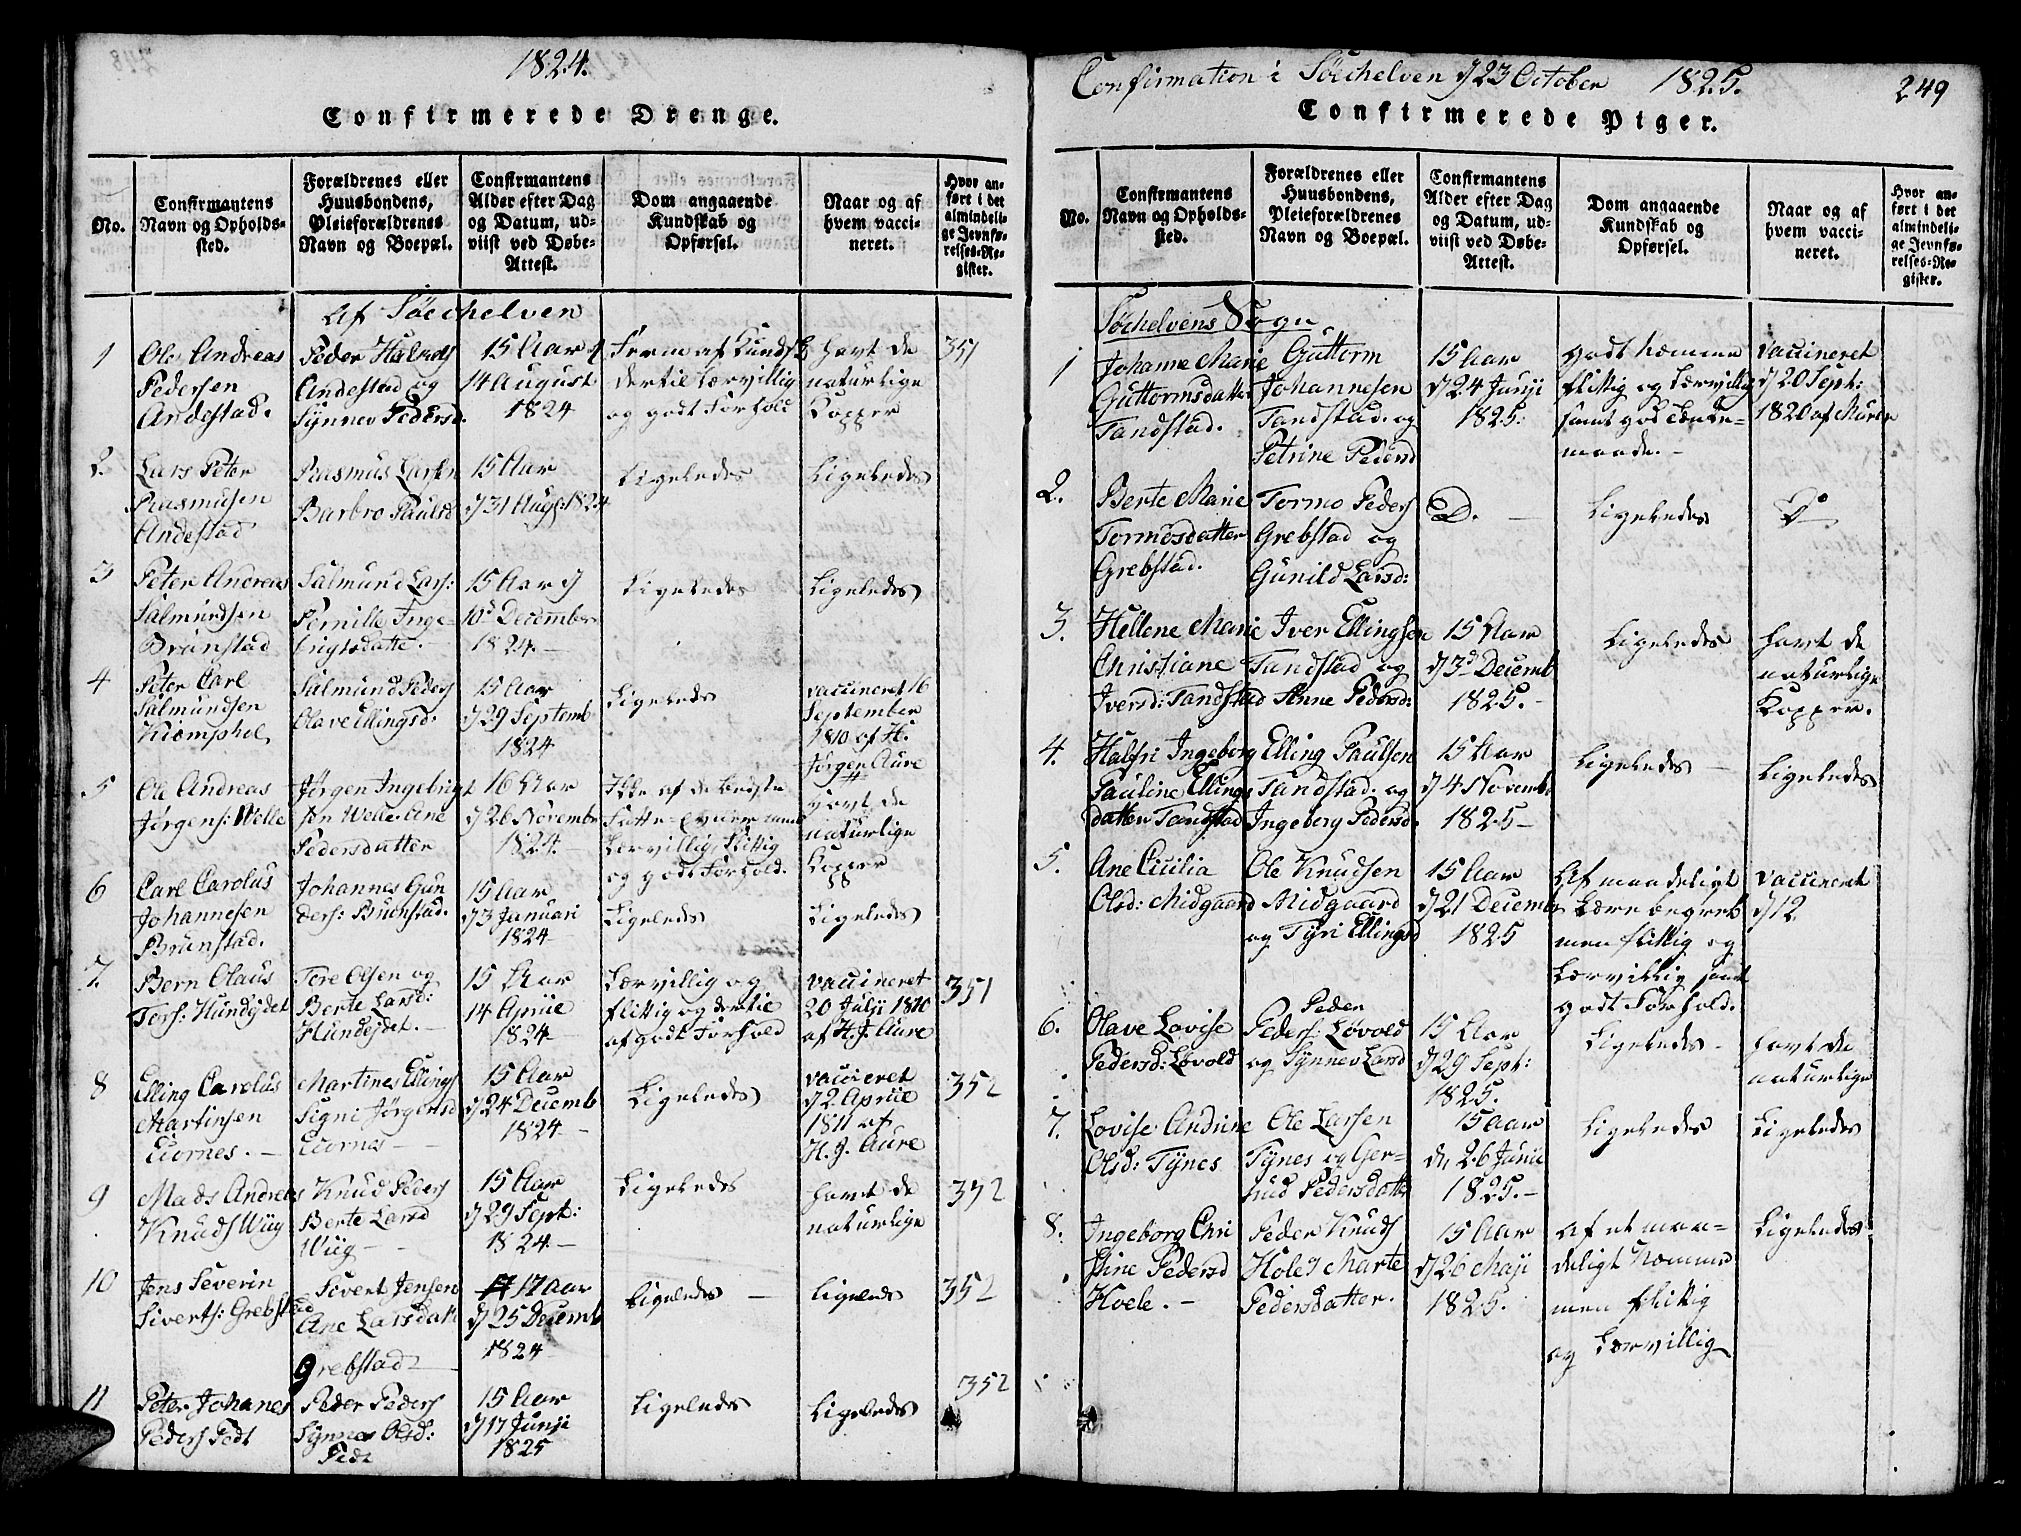 1824.
Confirmerede Drenge.
No.
Confirmantens
Navn og Opholds-
sted.
Forældrenes eller
Huusbondens,
Pleieforældrenes
Navn og Boepæl.
Confirmantens
Alder efter Dag
og Datum, ud-
viist ved Døbe-
Attest.
Dom angaaende
Kundskab og
Opførsel.
Naar og af
hvem vacci-
neret.
Hvor an-
ført i det
almindeli-
ge Jevnfø-
relses-Re-
gister.
Af Söechelven
1
Ole Andreas
Pedersen
Andestad.
Peder
Andestad og
Synnev Pedersd.
15 Aar
14 August
1824
dertil lærvillig
og godt Forhold
havt de
naturlige
Kopper
351
2.
Lars Peter
Rasmusen
Andestad
Rasmus Larsen
Barbro Paulsd
15 Aar
d 31 Aug: 1824
Ligeledes
Ligeledes
3
Peter Andreas
Salmundsen
Brunstad
Salmund Lars:
Pernille Inge-
brigtsdatte.
15 Aar d
10d December
1824.
Ligeledes
Ligeledes
4
Peter Carl
Salmundsen
Kiemphol
Salmund Peders
Olave Ellingsd:
15 Aar
d 29 Septemb
1824
Ligeledes
vaccineret 16
September
1810 af H.
Jørgen Aure
5
Ole Andreas
Jørgens: Welle
Jørgen Ingebrigt
sen Welle. Ane
Pedersdatter
16 Aar
d 26 Novemb
1824.
Ikke af de bedste
lærvillig, flittig
og godt Forhold.
havt de
naturlige
Kopper
6
Carl Carolus
Johannesen
Brunstad.
Johannes Gun
ders: Brunstad.
15 Aar
d 3 Januari
1824
Ligeledes
Ligeledes
7.
Bern Olaus
Tors: Hundejdet
Tore Olsen og
Berte Larsd:
Hundejdet.
15 Aar
14 Apriie
1824
Lærvillig og
flittig og dertil
af godt Forhold
vaccineret
20 Julji 1810
af H. J. Aure
351
8
Elling Carolus
Martinsen
Eiornes.
Martines Ellings
Signi Jørgensd
Eiornes
15 Aar
d 24 Decemb
1824
Ligeledes
vaccieret
d 2 Apriie
1811 af
H. J. Aure
352
9
Mads Andreas
Knuds Wiig
Knud Peders
Berte Larsd
Wiig
15 Aar
d 29 Sept:
1824.
Ligeledes
havt de
naturlige
352
10
Jens Severin
Siverts: Grebstad
Sivert Jensen
Ane Larsdatt
Grebstad
17 Aar
d 25 Decemb
1824
Ligeledes
Ligeleds
352
11
Peter Johanes
Peders Pedt
Peder Peders
Synnev Olsd:
Pedt
15 Aar
d 17 Junji
1825
Ligeledes
Ligeledes
352
Confirmation i Söechelven d 23 October 1825.
249
Confirmerede Piger.
No.
Confirmantens
Navn og Opholds-
sted.
Forældrenes eller
Huusbondens,
Pleieforældrenes
Navn og Boepæl.
Confirmantens
Alder efter Dag
og Datum, ud-
viist ved Døbe-
Attest.
Dom angaaende
Kundskab og
Opførsel.
Naar og af
hvem vacci-
neret.
Hvor an-
ført i det
almindeli-
ge Jevnfø-
relses-Re-
gister.
Söchelvens Sogn
1
Johanne Marie
Guttormsdatter
Tandstad.
Guttorm
Johannesen
Tandstad. og
Petrine Pedersd
15 Aar
d 24 Junji
1825.
godt Nemme
flittig og lærvillig
samt god Tænke-
maade.
vaccineret
d 20 Sept:
1820 af
2.
Berte Marie
Tormosdatter
Grebstad.
Tormo Peders
Grebstad og
Gunild Larsd:
D.
Ligeledes
D
3.
Hellene Marie
Christiane
Iversd: Tandstad
Iver Ellingsen
Tandstad og
Anne Pedersd:
15 Aar
d 3d Decemb
1825.
Ligeledes
havt de
naturlige
Kopper.
4.
Halfri Ingeborg
Pauline Ellings
datter Tandstad
Elling Paulsen
Tandstad. og
Ingeberg Pedersd.
15 Aar
d 4 Novemb
1825
Ligeledes
Ligeledes
5.
Ane Cicilia
Olsd: Midgaard
Ole Knudsen
Midgaard
og Tyri Ellingsd
15 Aar
d 21 Decemb
1825
Af maadeligt
Lærebegreb
men flittig og
lærvillig samt
godt Forhold.
vaccineret
d 12
6.
Olave Lovise
Pedersd: Lövold
Peder
Peders: Lövold
og Synnev Larsd
15 Aar
d 29 Sept:
1825.
Ligeledes
havt de
naturlige
7.
Lovise Andrine
Olsd: Tynes
Ole Larsen
Tynes og Ger-
trud Pedersdatter
15 Aar
d, 26 Junii
1825.
Ligeledes
Ligeledes
8.
Ingeborg Chri
stine Pedersd
Hvele.
Peder Knuds
Hole & Marte
Pedersdatter.
15 Aar
d 26 Maji
1825.
af et maa-
deligt Nemme
men flittig
og lærvillig
Ligeledes